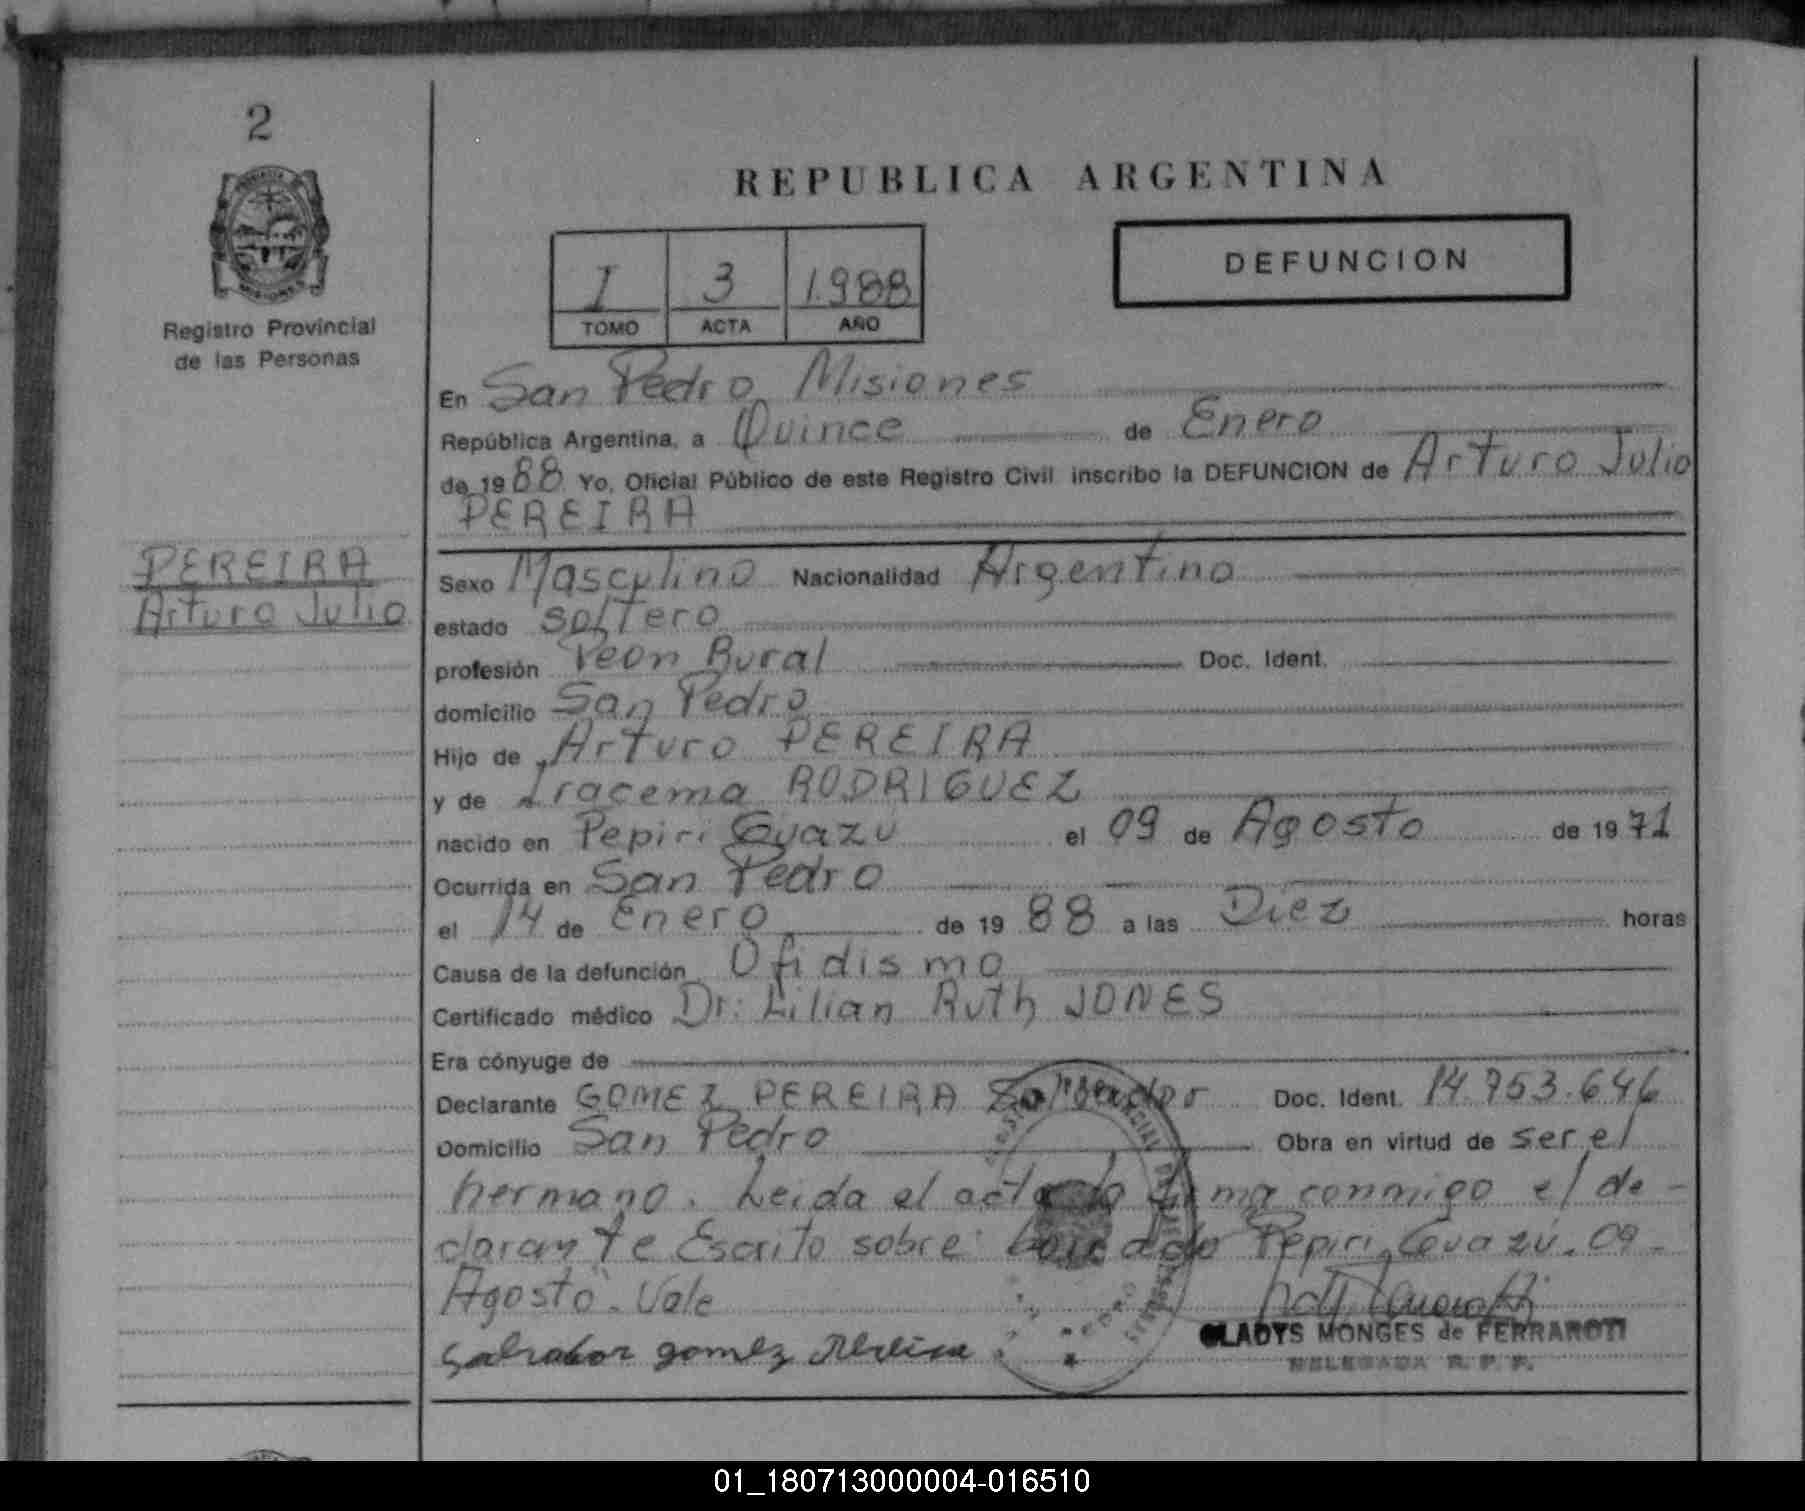 2
REPUBLICA ARGENTINA
I 3 1.988
TOMO ACTA AÑO
DEFUNCION
MISIONES
Registro Provincial
de las Personas
En San Pedro Misiones
República Argentina, a Quince de Enero
de 1988 Yo, Oficial Público de este Registro Civil inscribo la DEFUNCION de Arturo Julio
PEREIRA
PEREIRA
Arturo Julio
Sexo Masculino Nacionalidad Argentino
estado soltero
profesión Peon Rural Doc. Ident.
domicilio San Pedro
Hijo de Arturo PEREIRA
y de Iracema RODRIGUEZ
nacido en Pepiri Guazu el 09 de Agosto de 1971
Ocurrida en San Pedro
el 14 de Enero de 1988 a las Diez horas
Causa de la defunción Ofidismo
Certificado médico Dr: Lilian Ruth JONES
Era cónyuge de
Declarante GOMEZ PEREIRA Salvador Doc. Ident. 14.753.646
Domicilio San Pedro Obra en virtud de ser el
hermano. Leida el acta la firma conmigo el de-
clarante Escrito sobre borrado Pepiri Guazú. 09-
Agosto. Vale
Salvador gomez Pereira
GLADYS MONGES de FERRAROTI
DELEGADA R. P. P.
01_180713000004-016510